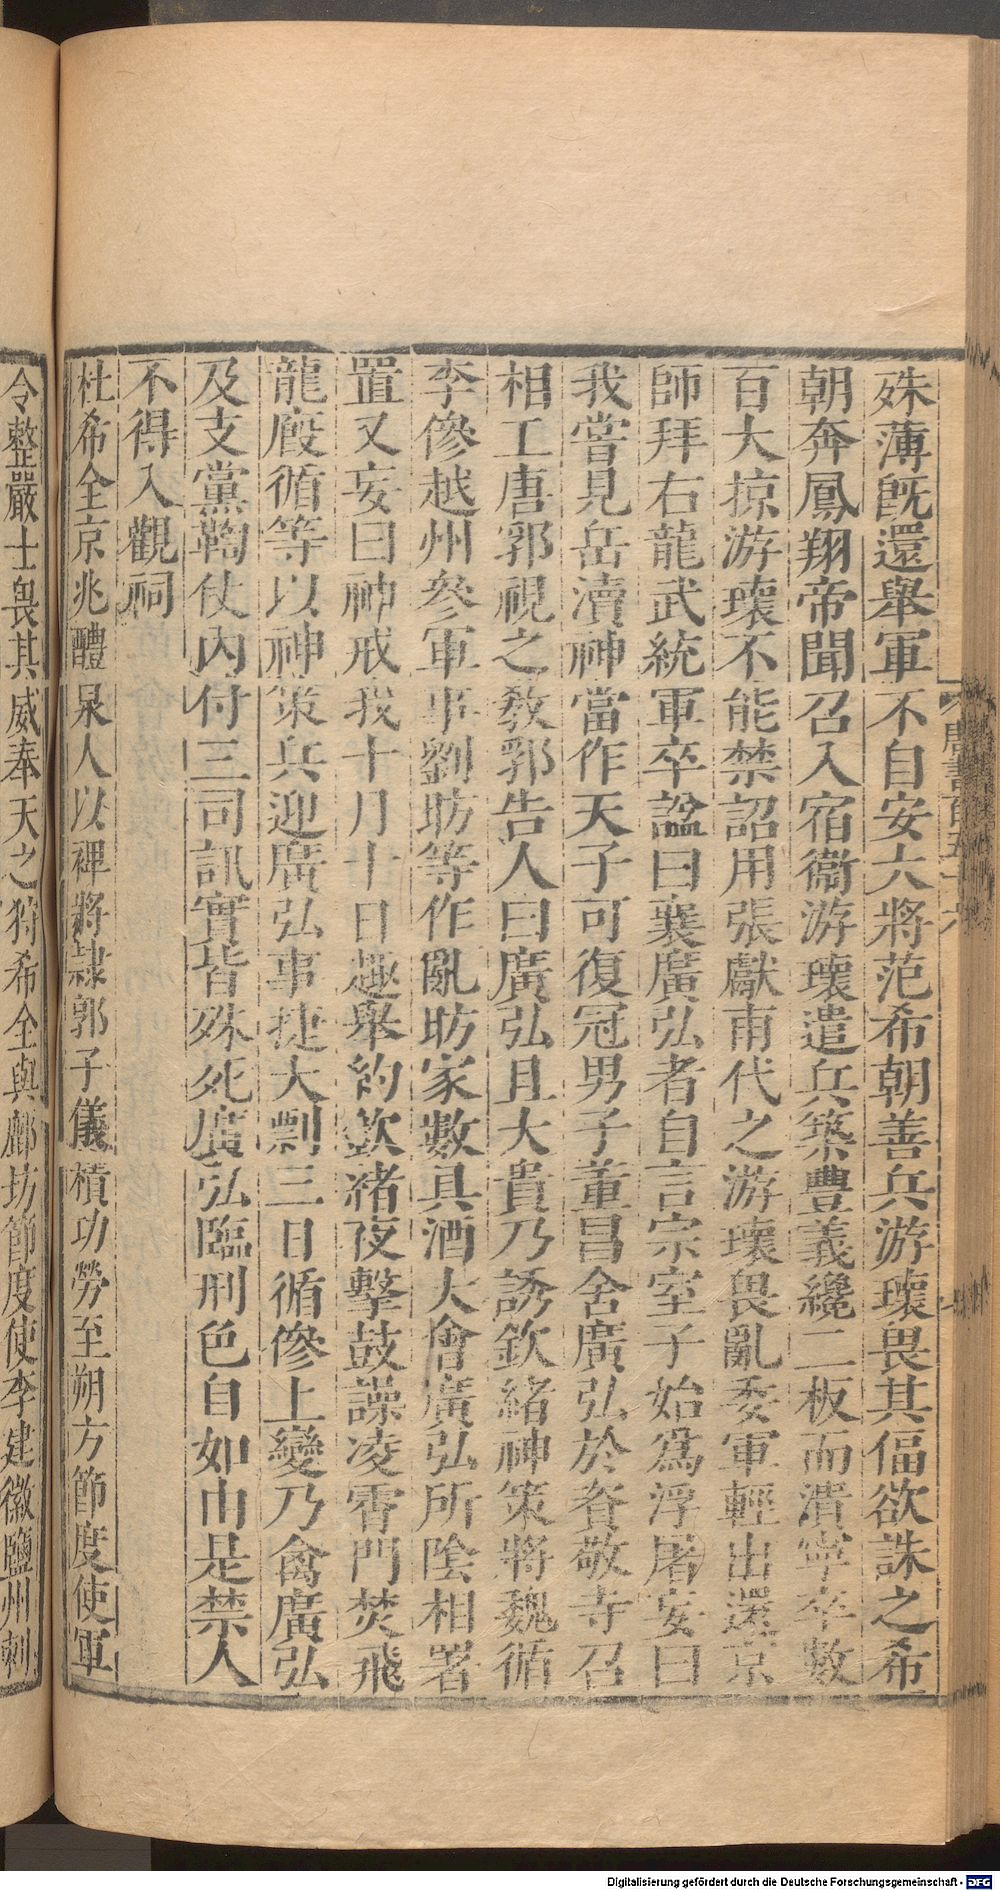 殊薄既還舉軍不自安六將范希朝善兵游瓌畏其偪欲誅之希
朝奔鳳翔帝聞召入宿衞游瓌遣兵築豐義纔二板而潰寧卒數
百大掠游瓌不能禁詔用張獻甫代之游瓌畏亂委軍輕出還京
師拜右龍武統軍卒諡曰襄廣弘者自言宗室子始爲浮屠妄曰
我嘗見岳瀆神當作天子可復冠男子董昌舍廣弘於資敬寺召
相工唐郛視之敎郛告人曰廣弘且大貴乃誘欽緒神策將魏循
李傪越州參軍事劉昉等作亂昉家數具酒大會廣弘所陰相署
置又妄曰神戒我十月十日趣舉約欽緖夜擊鼓譟凌霄門焚飛
龍廐循等以神策兵迎廣弘事捷大剽三日循傪上變乃禽廣弘
及支黨鞫仗內付三司訊實皆殊死廣弘臨刑色自如由是禁人
不得入觀祠
杜希全京兆醴泉人以裨將隷郭子儀積功勞至朔方節度使軍
令整嚴士畏其威奉天之狩希全與鄜坊節度使李建徽鹽州刺
Digitalisierung gefördert durch die Deutsche Forschungsgemeinschaft - DFG